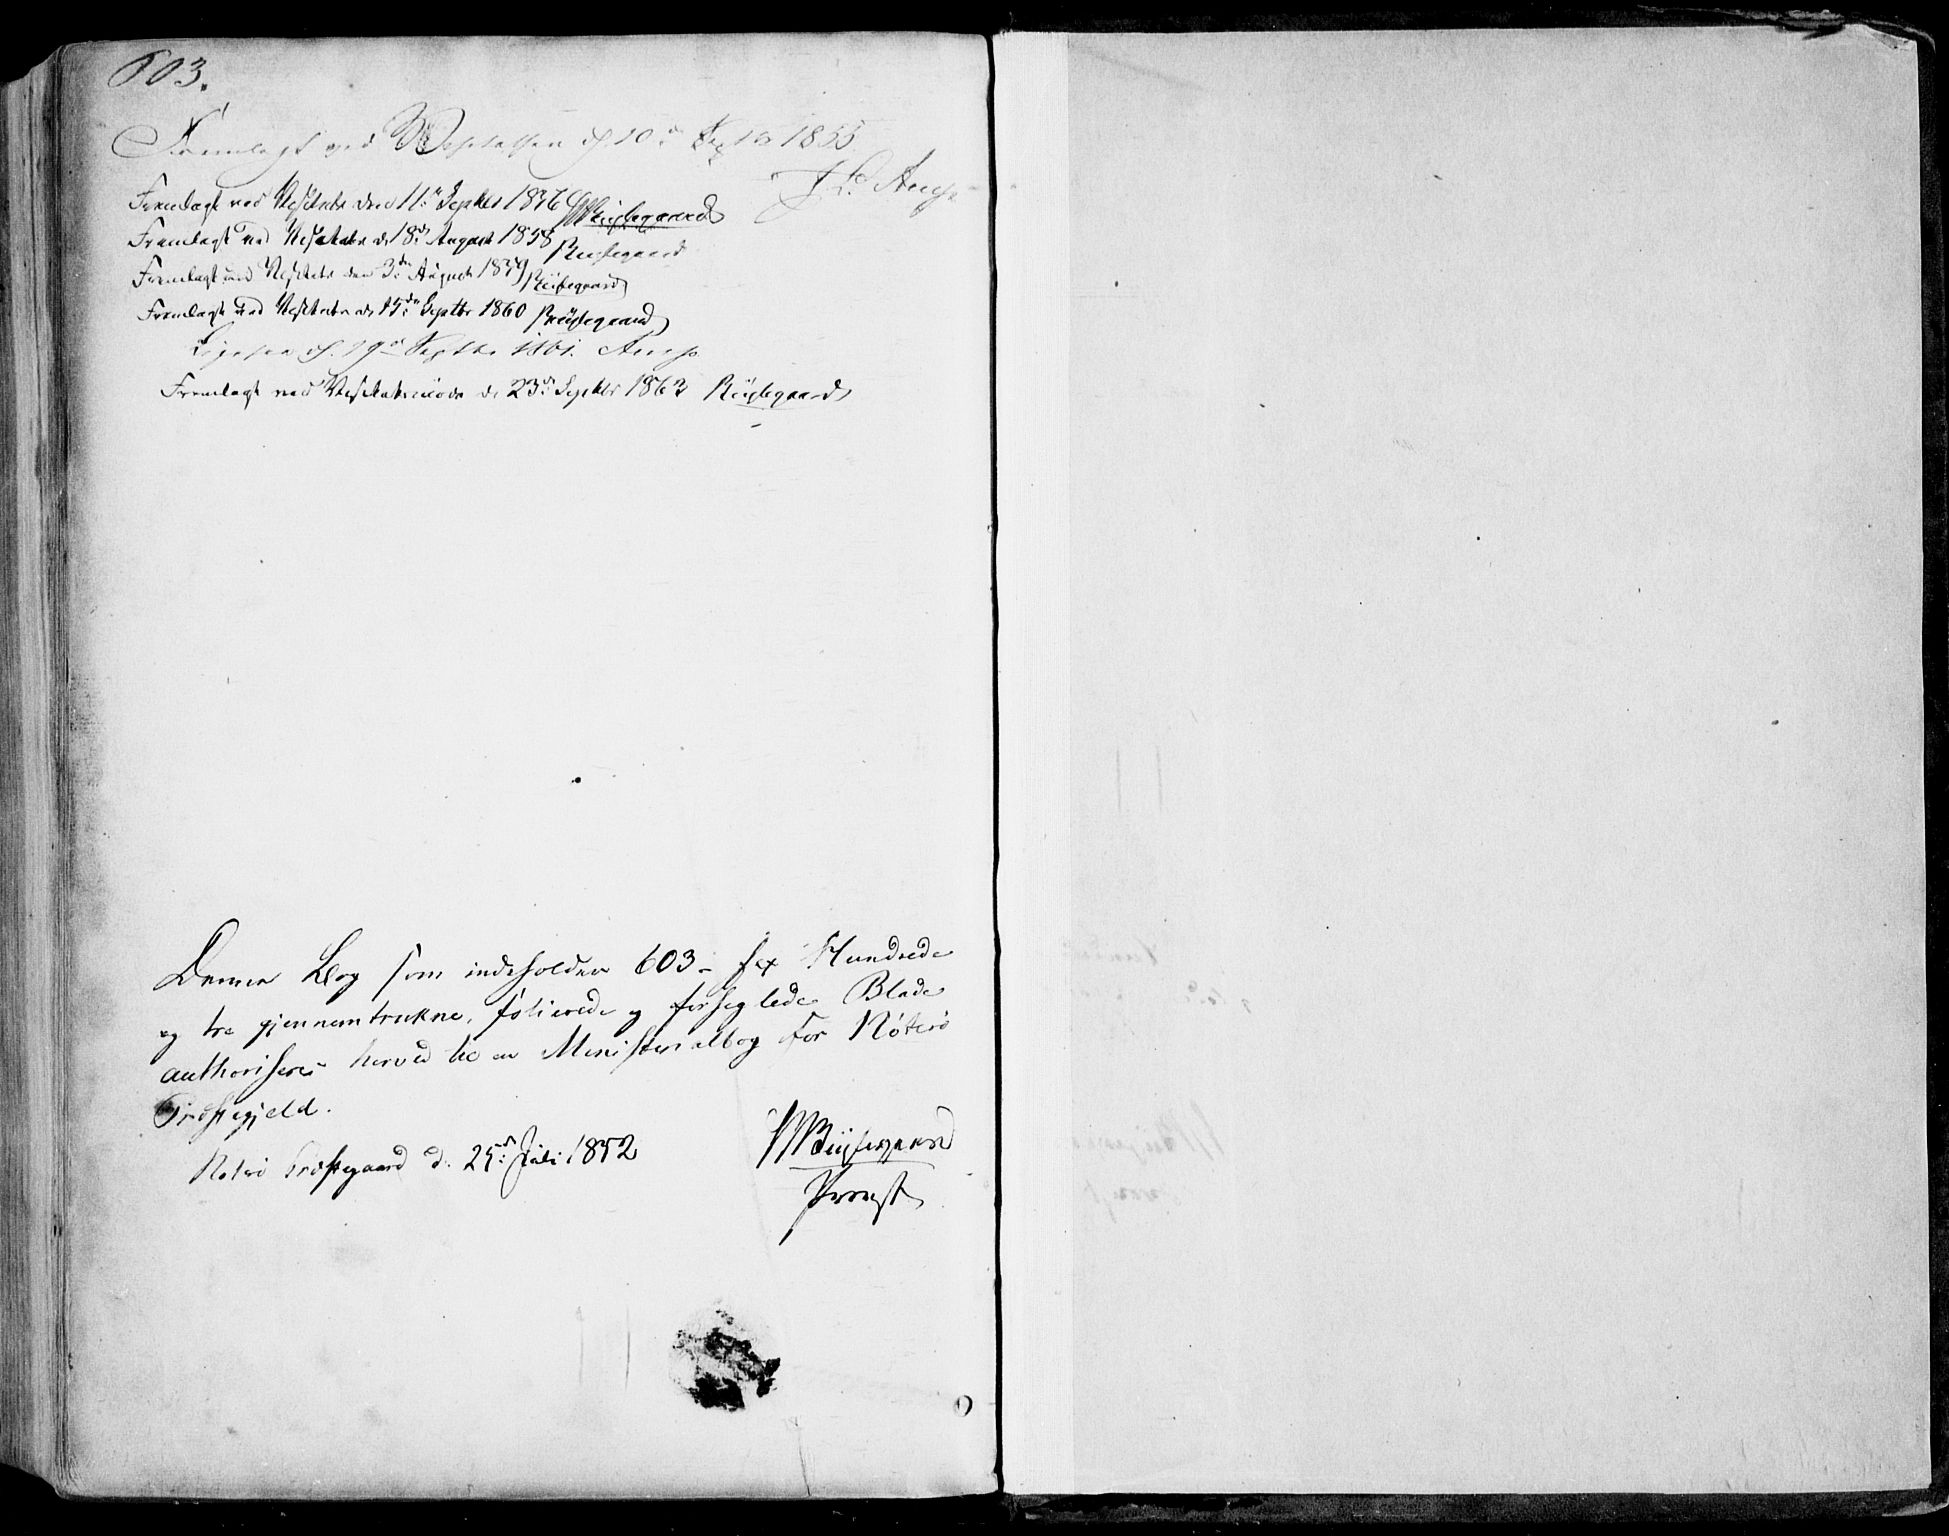 603.
Fremlagt ved Visitatsen d. 10de Septbr 1855.
Fremlagt ved Visitats den 11te Septbr 1856
Fremlagt ved Visitats d. 18de August 1858
Fremlagt ved Visitats den 3die August 1859
Fremlagt ved Visitats d. 15de Septbr 1860
Ligesaa d. 19de Septbr 1861.
Fremlagt ved Visitats d. 23de Septbr 1862
Denne Bog som indeholder 603 - sex Hundrede
og tre gjennemtrukne, folierede og forseglede Blade
authoriseres herved til en Ministerialbog for Nøterø
Præstegjeld.
Nøterø Præstegaard d. 25de Juli 1852
Provst